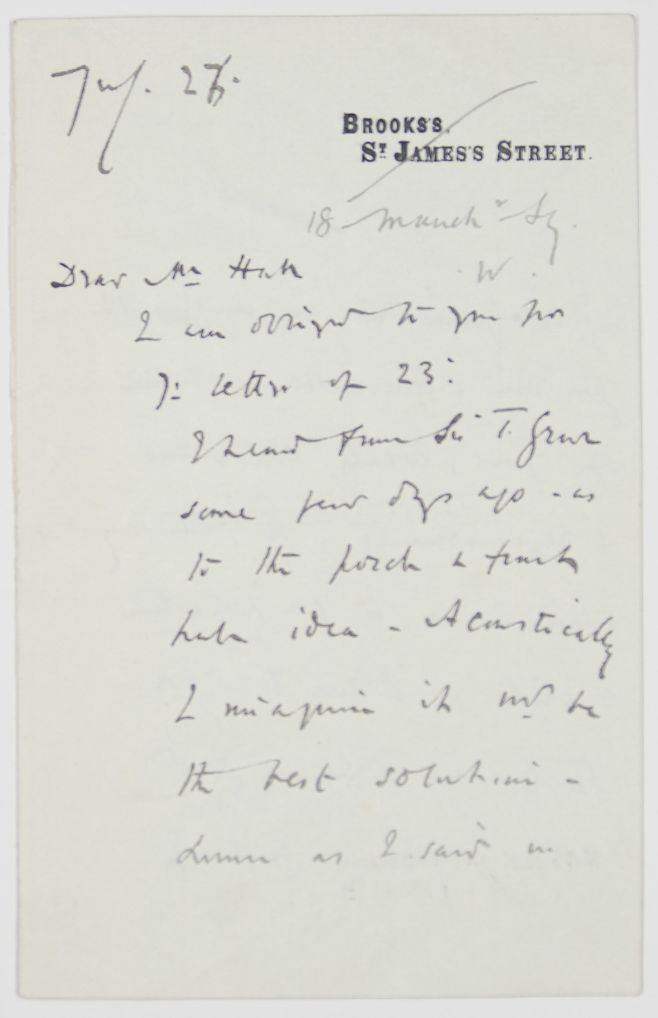 27.
BROOKS'S,
ST JAMES'S STREET.
18 Manchr Sq.
W.
Dear Mr
I am obliged to you for
yr letter of 23:
I heard from Sir T.
some few days ago - as
to the porch a
idea - Acoustically
I imagine it wd be
the best solution -
as I said in